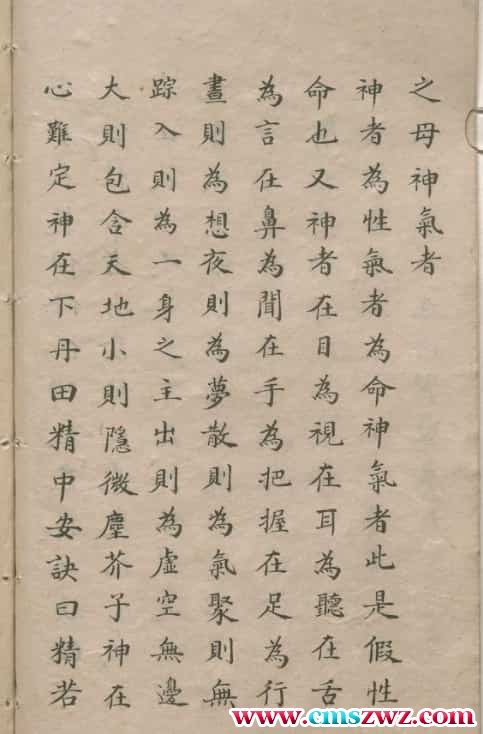 之母神氣者
神者為性氣者為命神氣者此是假性
命也又神者在目為視在耳為聽在舌
為言在鼻為聞在手為把握在足為行
晝則為想夜則為夢散則為氣聚則無
踪入則為一身之主出則為虛空無邊
大則包含天地小則隱微塵芥子神在
心難定神在下丹田精中安訣曰精若
www.cmszwz.com